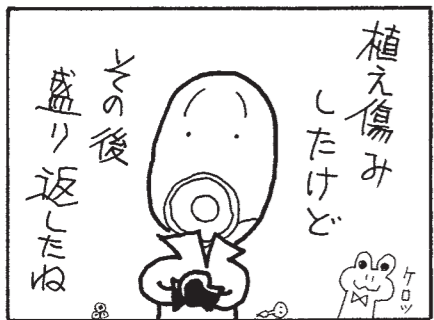 植え傷み
したけど
その後
盛り返したね
ケロッ